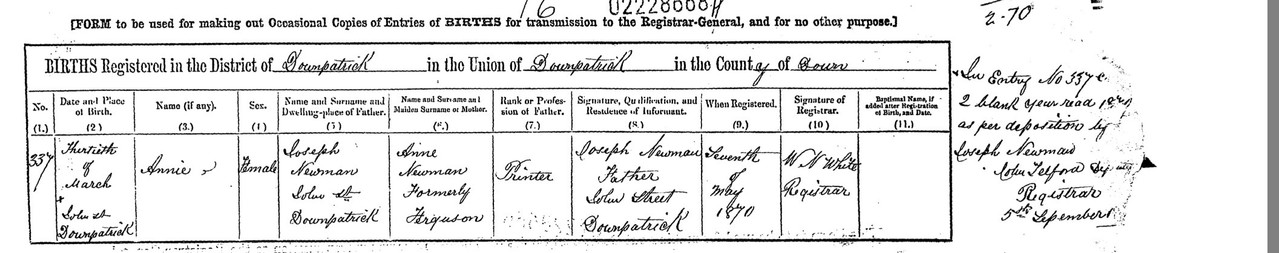 16 02228668
2-70
[FORM to be used for making out Occasional Copies of Entries of BIRTHS for transmission to the Registrar-General, and for no other purpose.]
BIRTHS Registered in the District of Downpatrick in the Union of Downpatrick in the County of Down
No. (1.)
Date and Place of Birth. (2)
Name (if any). (3.)
Sex. (4)
Name and Surname and Dwelling-place of Father. (5)
Name and Surname and Maiden Surname or Mother. (6.)
Rank or Profession of Father. (7.)
Signature, Qualification, and Residence of Informant. (8.)
When Registered. (9.)
Signature of Registrar. (10)
Baptismal Name, if added after Registration of Birth, and Date. (11.)
337
Thirtieth
of
March
John St
Downpatrick
Annie
Female
Joseph
Newman
John St
Downpatrick
Anne
Newman
Formerly
Ferguson
Printer
Joseph Newman
Father
John Street
Downpatrick
Seventh
of
May
1870
W N White
Registrar
In Entry No 337
2 blank year read
as per deposition by
Joseph Newman
John Telford
Registrar
5th September